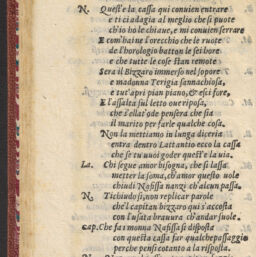 N. Quest'e la cassa qui conuien entrare
e ti ci adagia al meglio che si puote
ch'io ho le chiaue, e mi conuien serrare
E com'haine l'orecchio che le ruote
de l'horologio batton le sei hore
e che tutte le cose stan remote
Sera il Bizzaro immerso nel sopore
e madonna Terigia sonnachiosa,
e tut'apri pian piano, & esci fore,
E l'assalta sul letto oue riposa,
che s'ella t'ode pensera che sia
il marito per farle qualche cosa.
Non la mettiamo in lunga diceria
entra dentro Lattantio ecco la cassa
che se tu uuoi goder quest'e la uia.
La. Chi segue amor bisogna, che si lassa
metter la soma, ch'amor questo uole
chiudi Nafissa nanzi ch'alcun passa.
N. Ti chiudo ti, non replicar parole
che'l capitan bizzaro qui s'accosta
con l'usata brauura ch'andar suole.
Cap. Che fai monna Nafissa si disposta
con questa cassa fur qualche passaggio
perche pensi cotanto a la risposta.